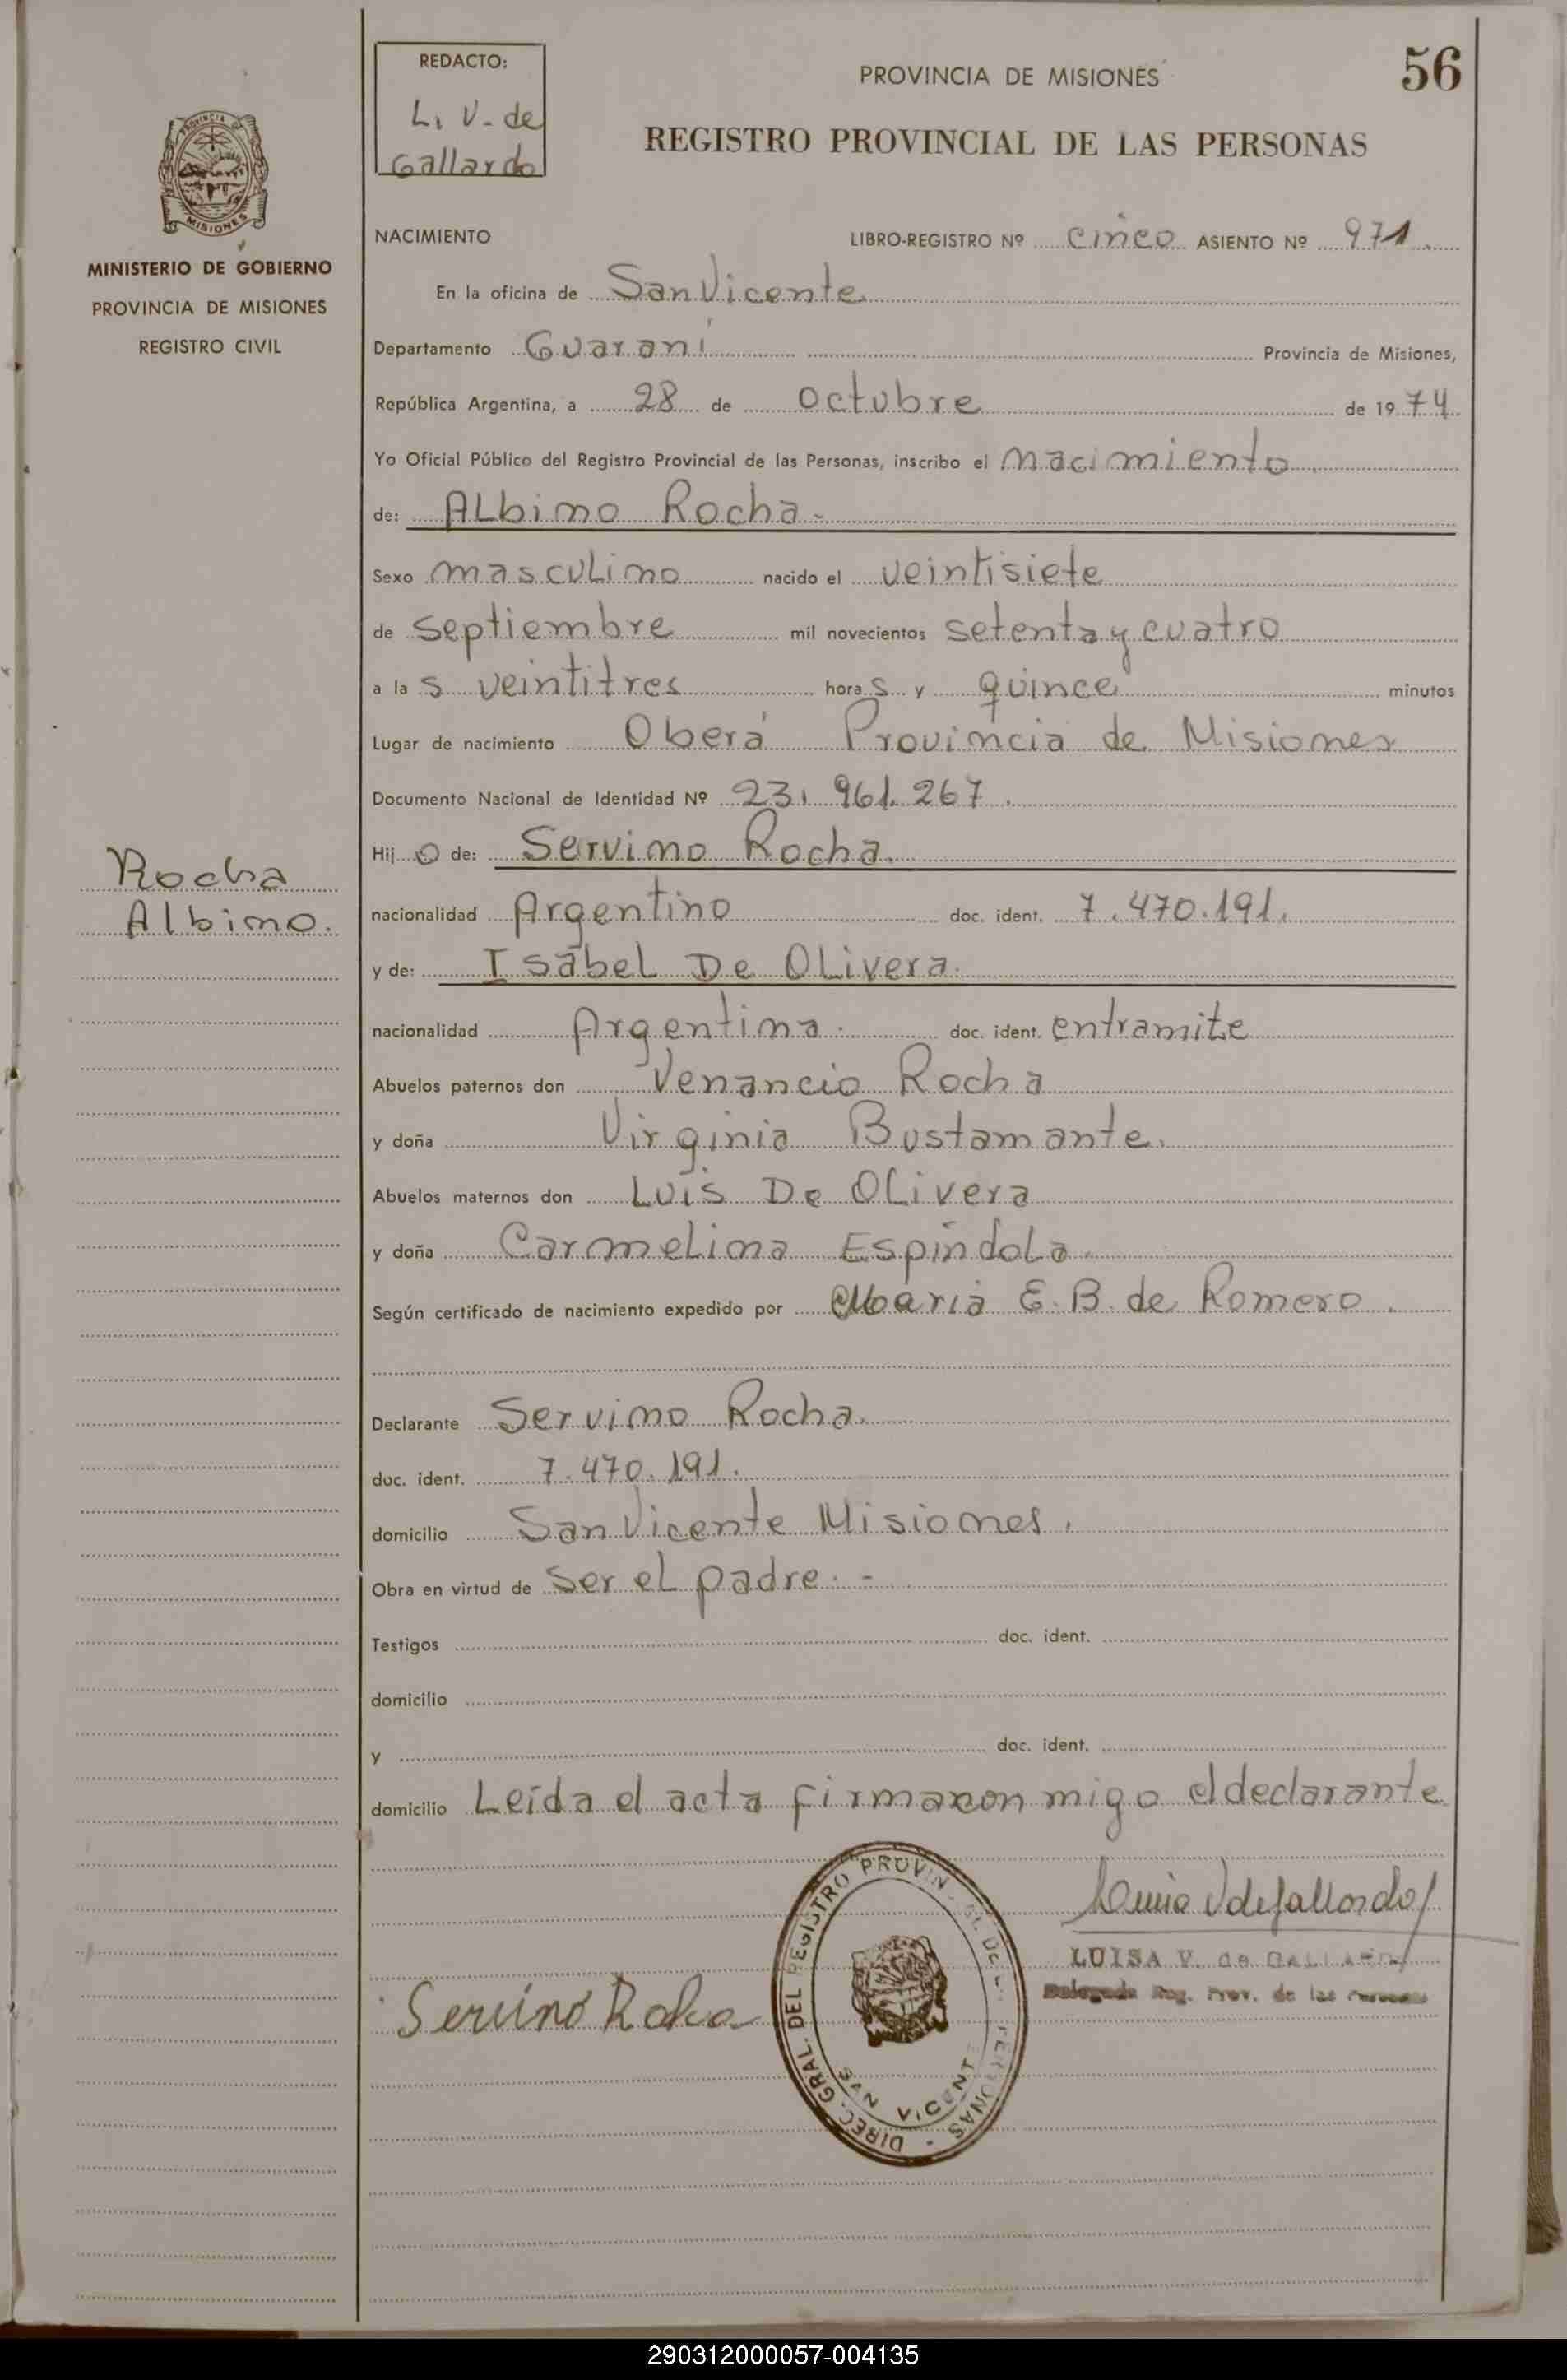 REDACTO:
L. V. de
Gallardo
PROVINCIA DE MISIONES
56
REGISTRO PROVINCIAL DE LAS PERSONAS
PROVINCIA DE
MISIONES
MINISTERIO DE GOBIERNO
PROVINCIA DE MISIONES
REGISTRO CIVIL
NACIMIENTO
LIBRO-REGISTRO Nº cinco ASIENTO Nº 971.
En la oficina de San Vicente
Departamento Guaraní Provincia de Misiones,
República Argentina, a 28 de octubre de 1974.
Yo Oficial Público del Registro Provincial de las Personas, inscribo el nacimiento.
de: ALbino Rocha-
Sexo masculino nacido el veintisiete
de septiembre mil novecientos setenta y cuatro
a las veintitres horas y quince minutos
Lugar de nacimiento Oberá Provincia de Misiones
Documento Nacional de Identidad Nº 23.961.267.
Hijo de: Servino Rocha.
Rocha
Albino.
nacionalidad Argentino doc. ident. 7.470.191.
y de: Isabel De OLivera.
nacionalidad Argentina. doc. ident. entramite
Abuelos paternos don Venancio Rocha
y doña Virginia Bustamante.
Abuelos maternos don Luis De OLivera
y doña CarmeLina EspíndoLa.
Según certificado de nacimiento expedido por María E. B. de Romero.
Declarante Servino Rocha.
doc. ident. 7.470.191.
domicilio San Vicente Misiones.
Obra en virtud de ser eL padre.-
Testigos doc. ident.
domicilio
y doc. ident.
domicilio Leída el acta firmaron migo el declarante
Luisa V de Gallardo
LUISA V. de GALLARDO
Delegada Reg. Prov. de las Personas
Servino Rocha
DIREC. GRAL. DEL REGISTRO PROVINCIAL DE LAS PERSONAS -
SAN VICENTE
290312000057-004135